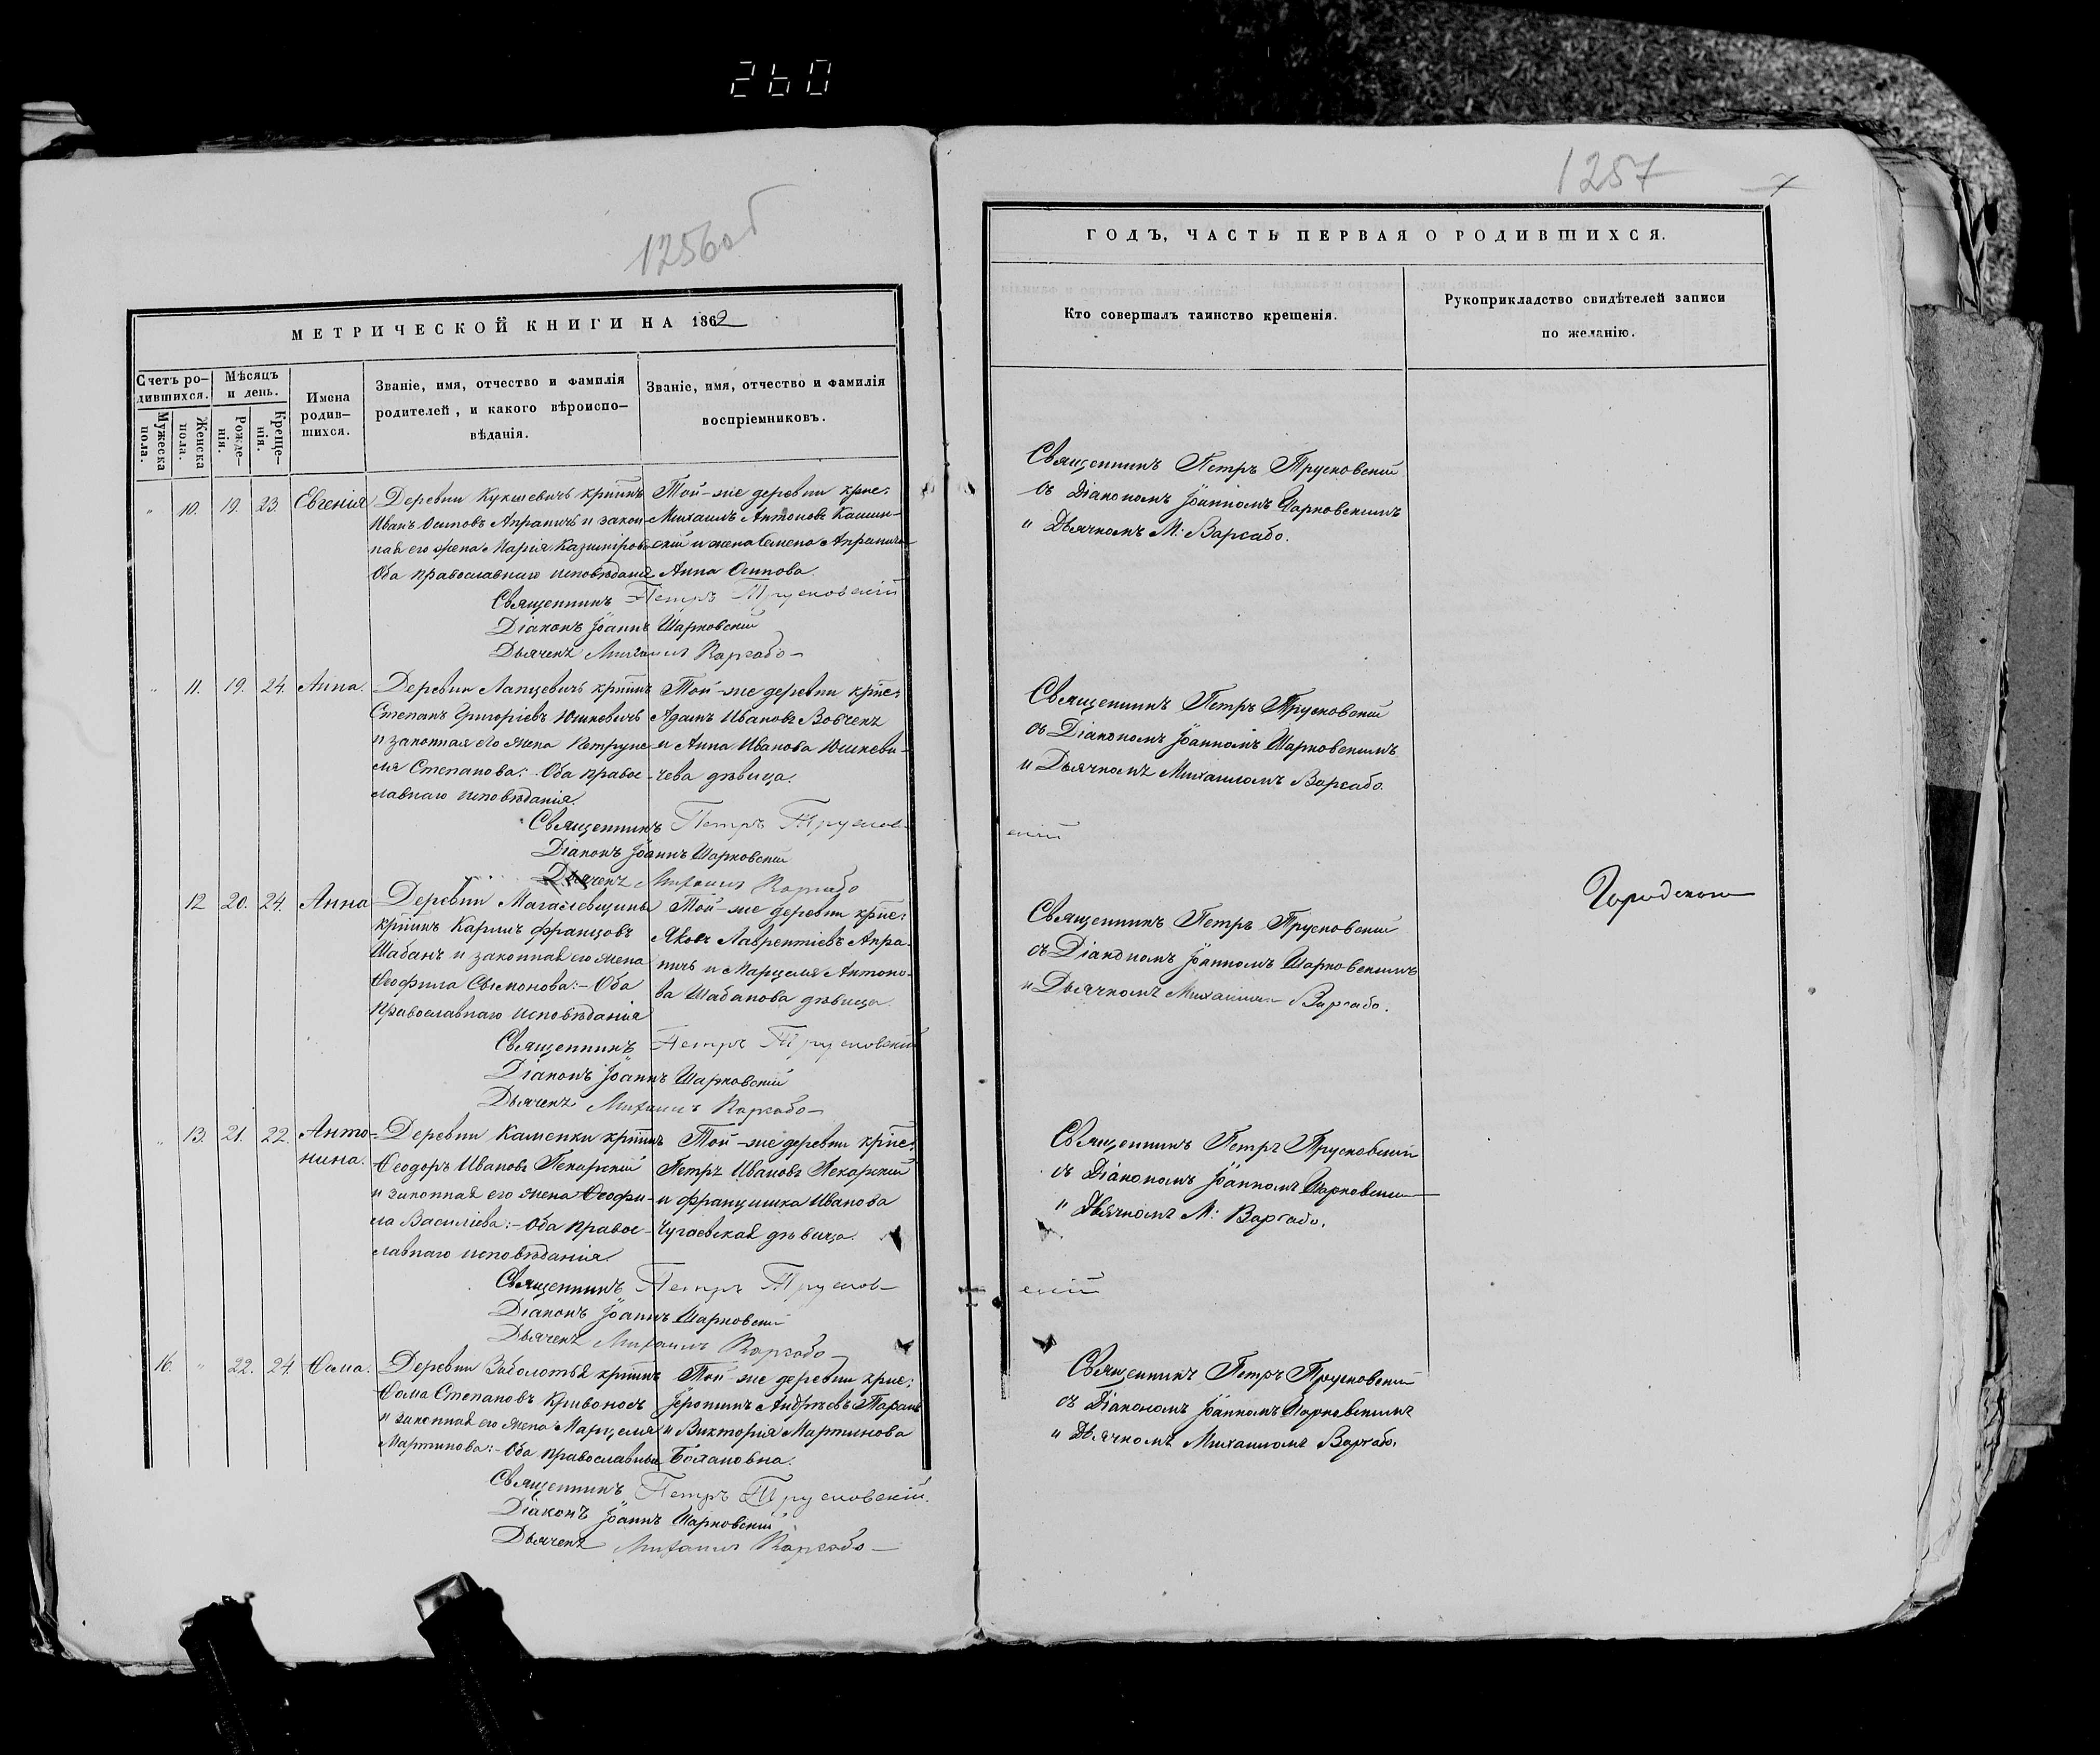 260
1256об
МЕТРИЧЕСКОЙ КНИГИ НА 1862
Счетъ ро-
дившихся.
Мужеска
пола.
Женска
пола.
Мѣсяцъ
и день.
Рожде-
нія.
Креще-
нія.
Имена
родив-
шихся.
Званіе, имя, отчество и фамилія
родителей, и какого вѣроиспо-
вѣданія.
Званіе, имя, отчество и фамилія
воспріемниковъ.
" 10. 19. 23. Евгенія
Деревни Кукшевичъ
Иванъ Осиповъ Апраничъ и закон-
ная его жена Марія Казимірова
Оба православнаго исповѣданія
Той-же деревни
Михаилъ Антоновъ
и жена Семена
Анна Осипова.
Священникъ Петръ Трусковскій
Діаконъ Іоаннъ Шарковскій
Дьячекъ Михаилъ Варгабо
" 11. 19. 24. Анна.
Деревни Лапцевичъ
Степанъ Григоріевъ Юшкевичъ
и законная его жена Петруне-
ля Степанова: Оба правос-
лавнаго исповѣданія.
Той-же деревни
Адамъ Ивановъ Вовчекъ
и Анна Иванова Юшкеви-
чева дѣвица.
Священникъ Петръ Трусков-
Діаконъ Іоаннъ Шарковскій
Дьячекъ Михаилъ Варгабо
12 20. 24. Анна
Деревни
Францовъ
Шабанъ и законная его жена
Ѳеофила Сымонова:- Оба
Православнаго исповѣданія
Той-же деревни
Яковъ Лаврентіевъ Апра-
ничъ и Марцеля Антоно-
ва Шабанова дѣвица.
Священникъ Петръ Трусковскій
Діаконъ Іоаннъ Шарковскій
Дьячекъ Михаилъ Варгабо
" 13. 21. 22. Анто-
нина.
Деревни Каменки
Ѳеодоръ Ивановъ Пекарскій
и законная его жена Ѳеофи-
ла Василіева:- Оба правос-
лавнаго исповѣданія.
Той-же деревни
Петръ Ивановъ Пекарскій
и Францишка Иванова
Чугаевская дѣвица.
Священникъ Петръ Трусков-
Діаконъ Іоаннъ Шарковскій
Дьячекъ Михаилъ Варгабо
16. " 22. 24. Ѳома.
Деревни Заболотья
Ѳома Степановъ Кривоносъ
и законная его жена Марцеля
Мартинова:- Оба православныя
Той-же деревни
Іеронимъ Андреевъ
и Викторія Мартинова
Священникъ Петръ Трусковскій.
Діаконъ Іоаннъ Шарковскій
Дьячекъ Михаилъ Варгабо
1257
ГОДЪ, ЧАСТЬ ПЕРВАЯ О РОДИВШИХСЯ.
Кто совершалъ таинство крещенія.
Рукоприкладство свидѣтелей записи
по желанію.
Священникъ Петръ Трусковскій
съ Діакономъ Іоанномъ Шарковскимъ
и Дьячкомъ М. Варгабо.
Священникъ Петръ Трусковскій
съ Діакономъ Іоанномъ Шарковскимъ
и Дьячкомъ Михаиломъ Варгабо.
скій
Священникъ Петръ Трусковскій
съ Діакономъ Іоанномъ Шарковскимъ
и Дьячкомъ Михаиломъ Варгабо.
Священникъ Петръ Трусковскій
съ Діакономъ Іоанномъ Шарковским
и Дьячкомъ М: Варгабо.
скій
Священникъ Петръ Трусковскій
съ Діакономъ Іоанномъ Шарковскимъ
и Дьячкомъ Михаиломъ Варгабо.